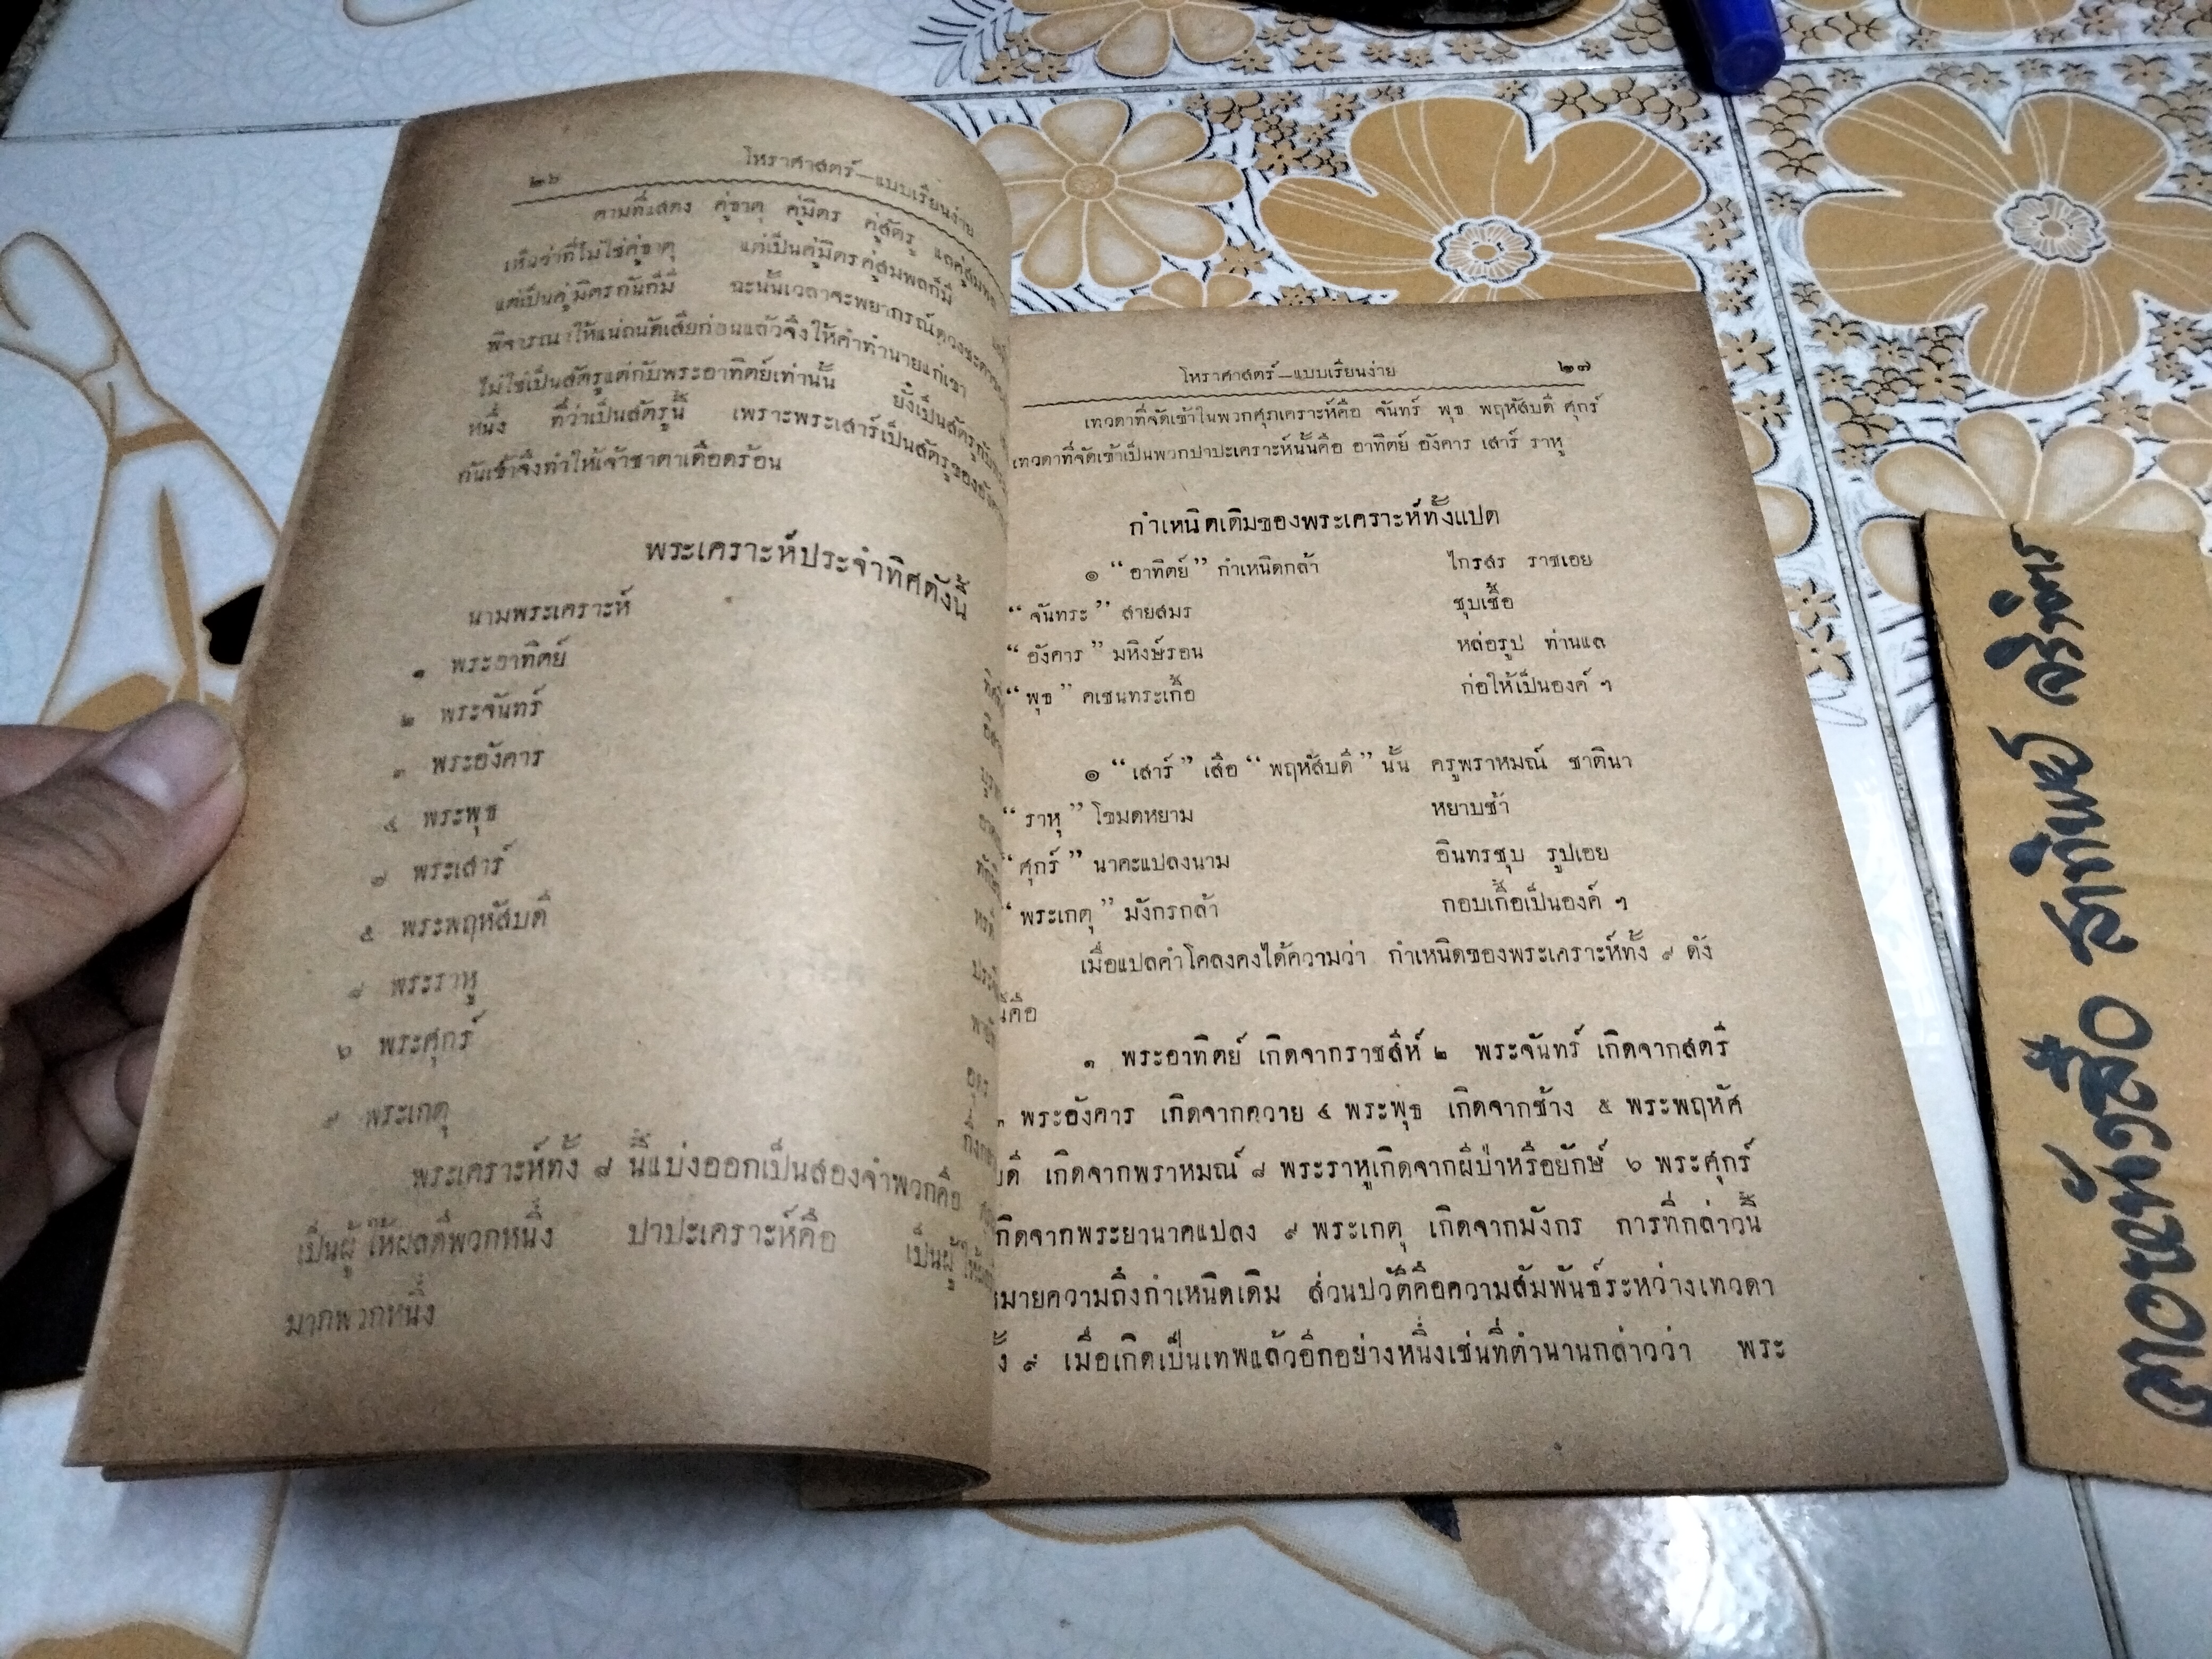 ๒๖ โหราศาสตร์—แบบเรียนง่าย
ตามที่แสดง คู่ธาตุ คู่มิตร คู่สัตรู และคู่สมพล
เห็นว่าที่ไม่ใช่คู่ธาตุ แต่เป็นคู่มิตรคู่สมพลก็มี
แต่เป็นคู่มิตรกันก็มี ฉะนั้นเวลาจะพยากรณ์ดวงชะตา
พิจารณาให้แน่นนัดเสียก่อนแล้วจึงให้คำทำนายแก่เขา
ไม่ใช่เป็นสัตรูแต่กับพระอาทิตย์เท่านั้น ยังเป็นสัตรูกับ
หนึ่ง ที่ว่าเป็นสัตรูนี้ เพราะพระเสาร์เป็นสัตรูของ
กันเข้าจึงทำให้เจ้าชาตาเดือดร้อน
พระเคราะห์ประจำทิศดังนี้
นามพระเคราะห์
๑ พระอาทิตย์
๒ พระจันทร์
๓ พระอังคาร
๔ พระพุธ
๗ พระเสาร์
๕ พระพฤหัสบดี
๘ พระราหู
๖ พระศุกร์
๙ พระเกตุ
พระเคราะห์ทั้ง ๘ นี้แบ่งออกเป็นสองจำพวกคือ
เป็นผู้ให้ผลดีพวกหนึ่ง ปาปะเคราะห์คือ เป็นผู้
มากพวกหนึ่ง
โหราศาสตร์—แบบเรียนง่าย ๒๗
เทวดาที่จัดเข้าในพวกศุภเคราะห์คือ จันทร์ พุธ พฤหัสบดี ศุกร์
เทวดาที่จัดเข้าเป็นพวกปาปะเคราะห์นั้นคือ อาทิตย์ อังคาร เสาร์ ราหู
กำเหนิดเดิมของพระเคราะห์ทั้งแปด
๑ “อาทิตย์” กำเหนิดกล้า ไกรสร ราชเอย
“จันทระ” สายสมร ชุบเชื้อ
“อังคาร” มหิงษ์รอน หล่อรูป ท่านแล
“พุธ” คเชนทระเกื้อ ก่อให้เป็นองค์ ๆ
๑ “เสาร์” เสือ “พฤหัสบดี” นั้น ครูพราหมณ์ ชาตินา
“ราหุ” โขมดหยาม หยาบช้า
“ศุกร์” นาคะแปลงนาม อินทรชุบ รูปเอย
“พระเกตุ” มังกรกล้า กอบเกื้อเป็นองค์ ๆ
เมื่อแปลคำโคลงคงได้ความว่า กำเหนิดของพระเคราะห์ทั้ง ๙ ดัง
นี้คือ
๑ พระอาทิตย์ เกิดจากราชสีห์ ๒ พระจันทร์ เกิดจากสตรี
๓ พระอังคาร เกิดจากควาย ๔ พระพุธ เกิดจากช้าง ๕ พระพฤหัศ
บดี เกิดจากพราหมณ์ ๘ พระราหูเกิดจากผีป่าหรือยักษ์ ๖ พระศุกร์
เกิดจากพระยานาคแปลง ๙ พระเกตุ เกิดจากมังกร การที่กล่าวนี้
หมายความถึงกำเหนิดเดิม ส่วนปวัติคือความสัมพันธ์ระหว่างเทวดา
ทั้ง ๙ เมื่อเกิดเป็นเทพแล้วอีกอย่างหนึ่งเช่นที่ตำนานกล่าวว่า พระ